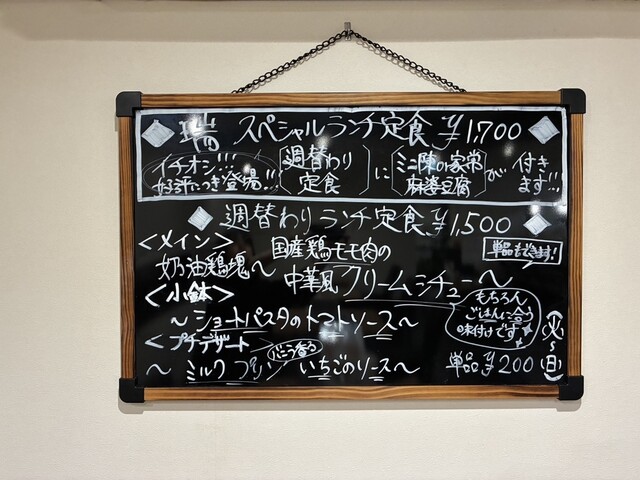 瑞 スペシャルランチ定食 ¥1,700
イチオシ!!!
好評につき登場!!
週替わり
定食
に
ミニ陳の家常
麻婆豆腐
が
付き
ます!!
週替わりランチ定食 ¥1,500
<メイン>
奶油鶏塊〜
国産鶏モモ肉の
中華風クリームシチュー〜
単品もできます!
<小鉢>
〜ショートパスタのトマトソース〜
もちろん
ごはんに合う
味付けです
<プチデザート>
バニラ香る
〜ミルクプリン いちごのソース〜
単品¥200
火〜日